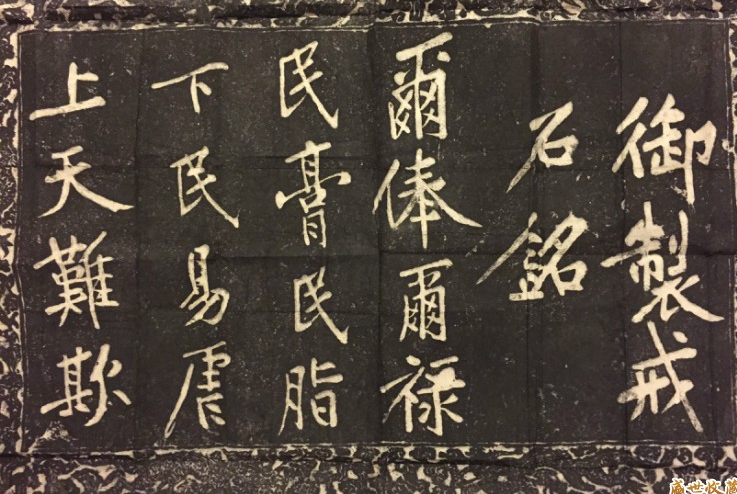 御製戒
石銘
爾俸爾祿
民膏民脂
下民易虐
上天難欺
盛世收藏